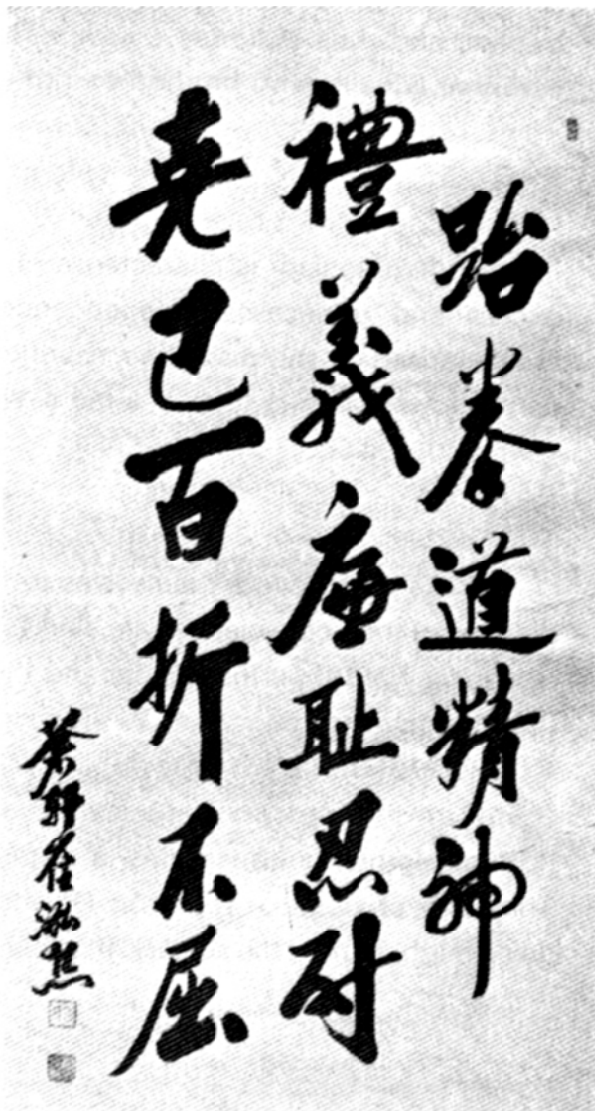 跆拳道精神
禮義廉耻忍耐
克己百折不屈
蒼軒崔泓熙